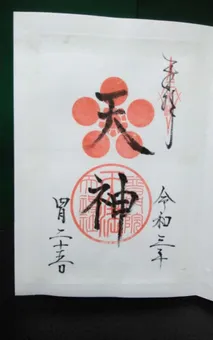 奉拝
天神
令和三年
四月二十五日